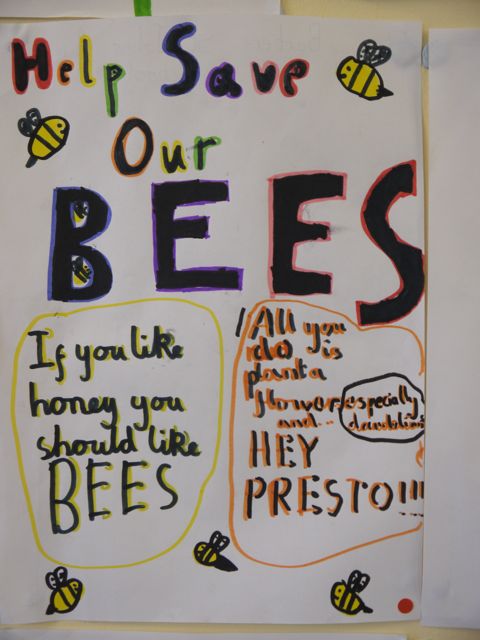 Help Save
Our
BEES
If you like
honey you
should like
BEES
All you
do is
plant a
flower especially
and... dandelions
HEY
PRESTO!!!